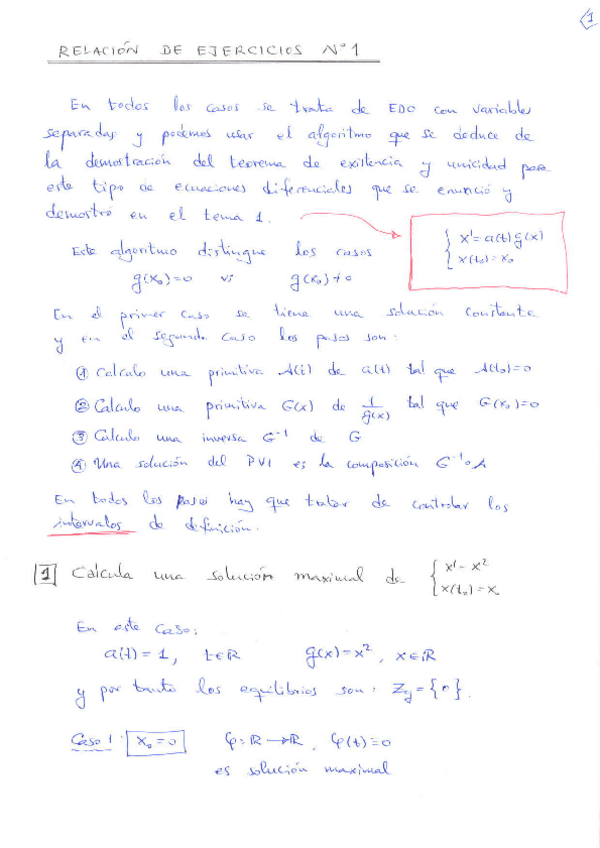 1
RELACIÓN DE EJERCICIOS Nº 1
En todos los casos se trata de EDO con variables
separadas y podemos usar el algoritmo que se deduce de
la demostración del teorema de existencia y unicidad para
este tipo de ecuaciones diferenciales que se enunció y
demostró en el tema 1.
{ x' = a(t) g(x)
x(t₀) = x₀
Este algoritmo distingue los casos
g(x₀)=0 vs g(x₀)≠0
En el primer caso se tiene una solución constante
y en el segundo caso los pasos son:
① Calculo una primitiva A(t) de a(t) tal que A(t₀)=0
② Calculo una primitiva G(x) de 1/g(x) tal que G(x₀)=0
③ Calculo una inversa G⁻¹ de G
④ Una solución del PVI es la composición G⁻¹∘A
En todos los pasos hay que tratar de controlar los
intervalos de definición.
1 Calcula una solución maximal de { x' = x²
x(t₀) = x₀
En este caso:
a(t) = 1, t∈ℝ g(x) = x², x∈ℝ
y por tanto los equilibrios son: Z_g = {0}.
Caso 1: x₀ = 0 φ: ℝ → ℝ, φ(t) = 0
es solución maximal